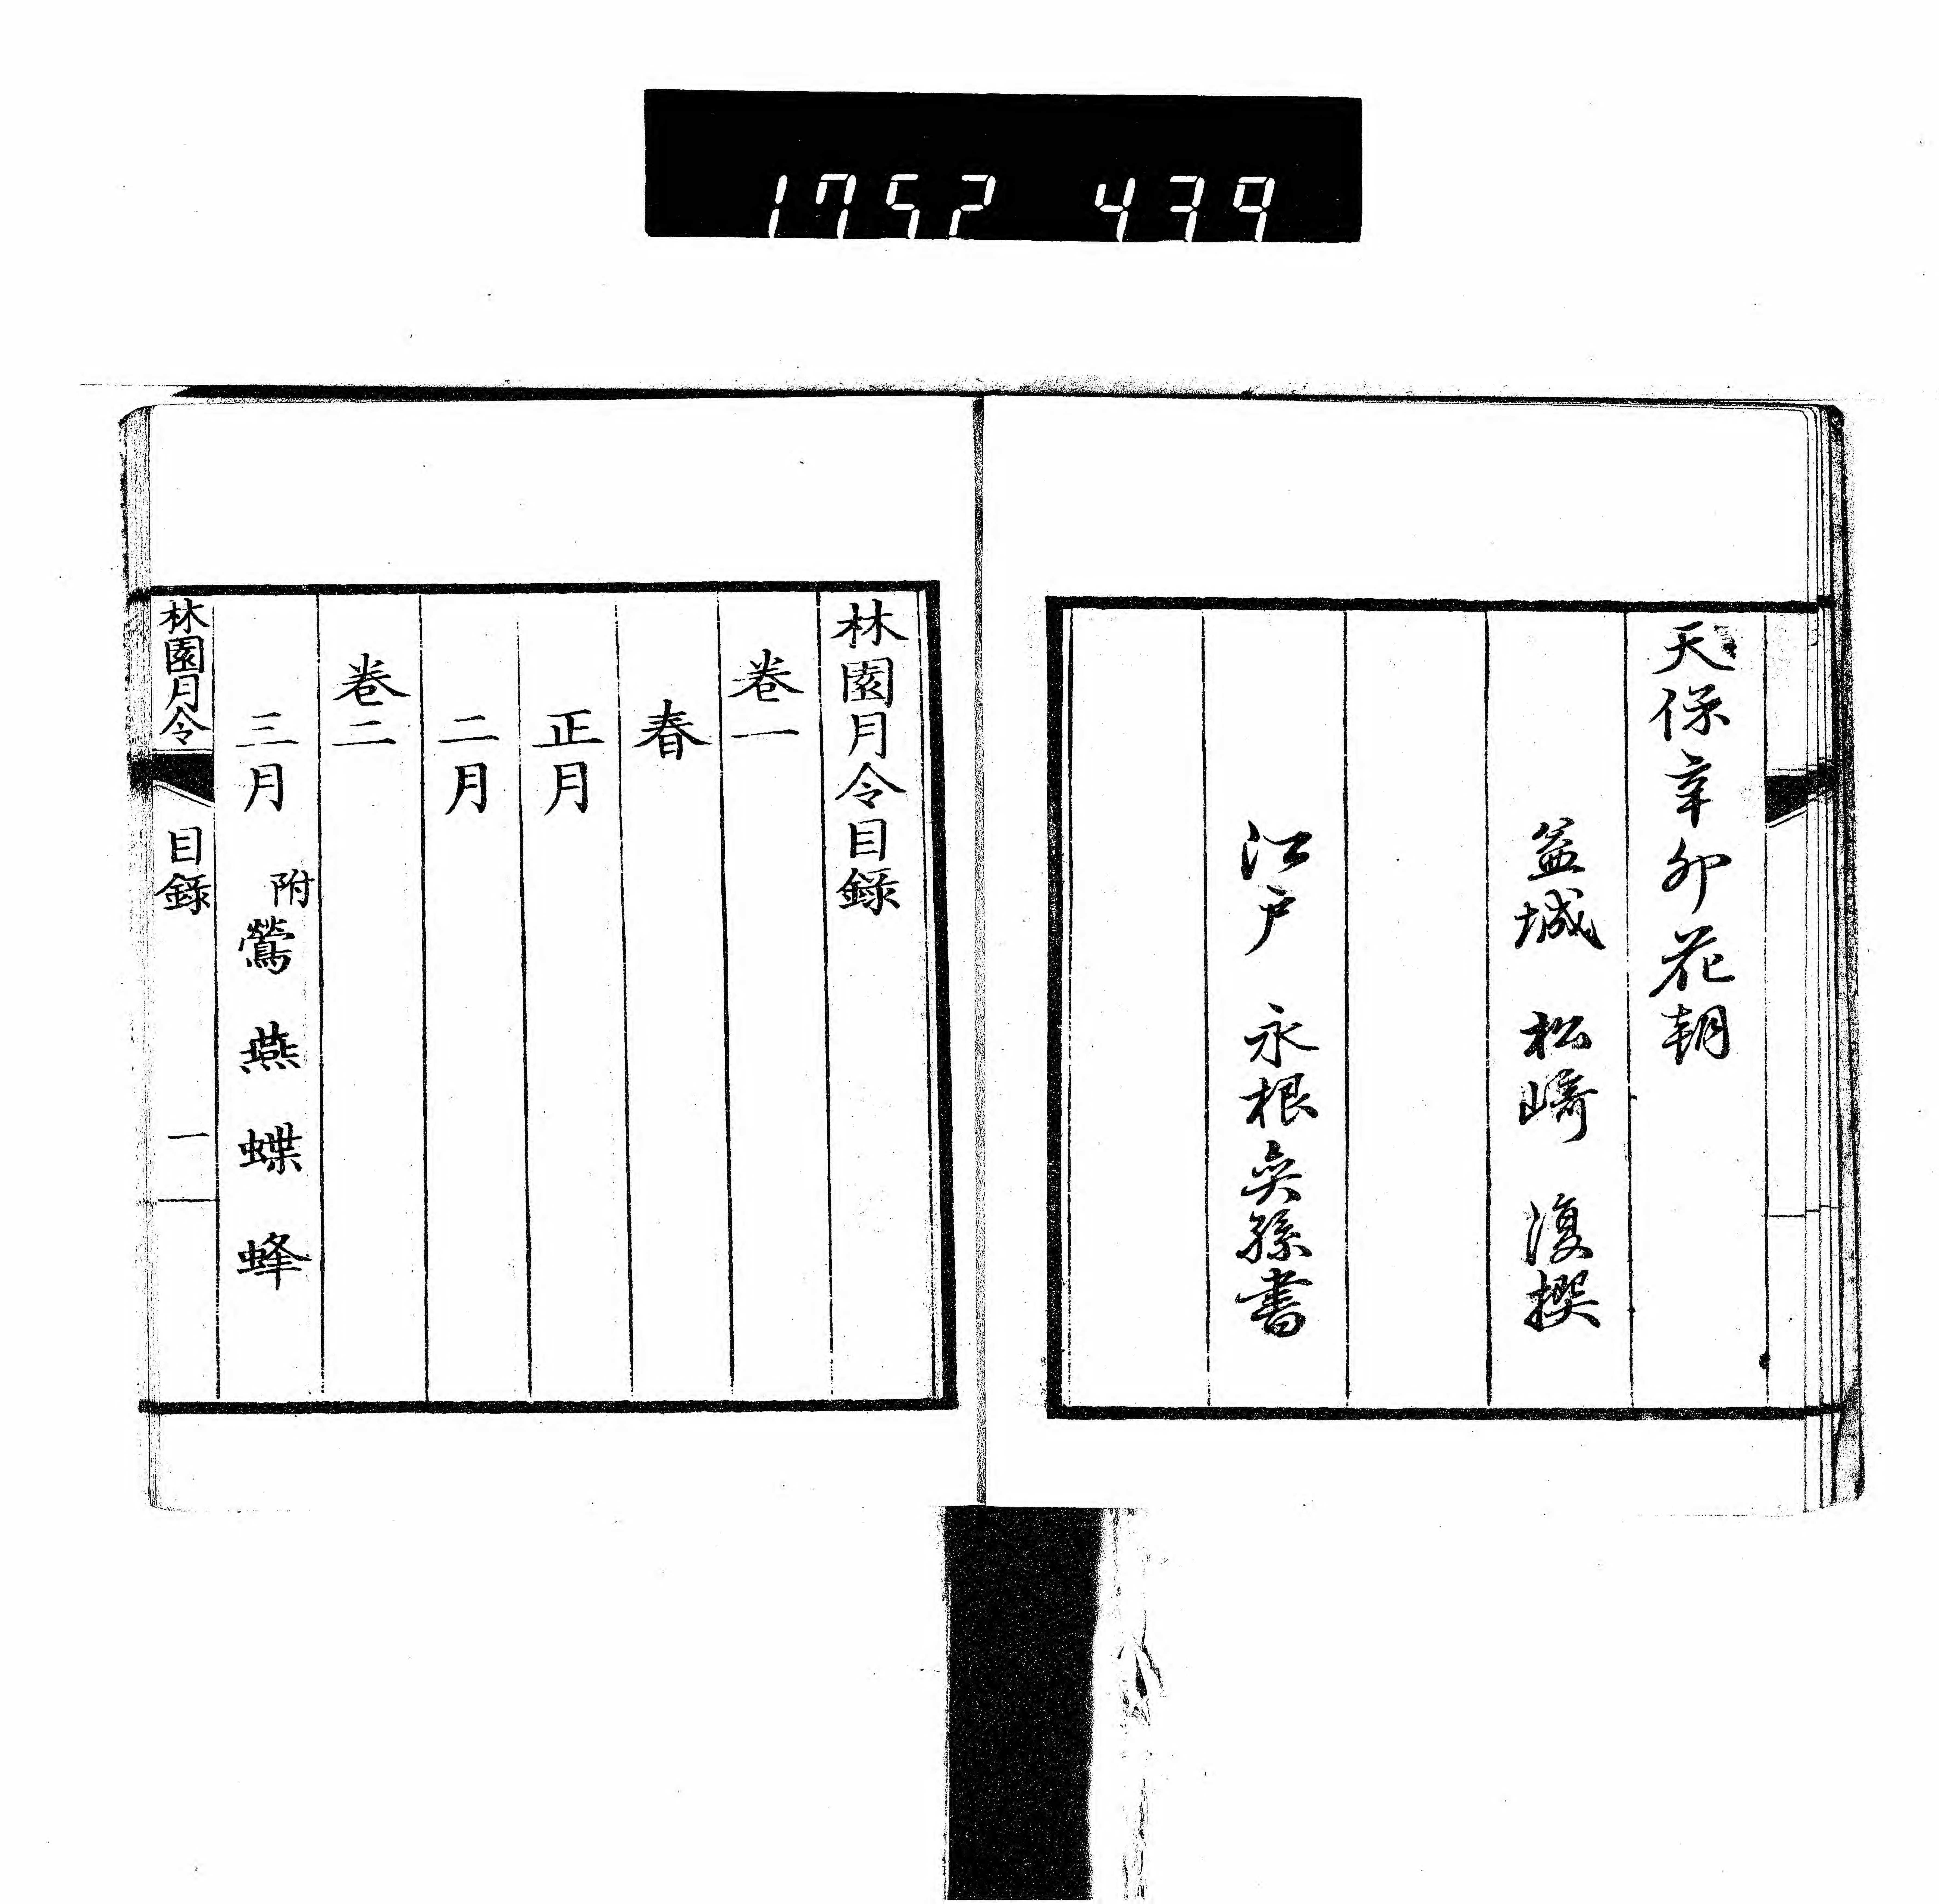 1752 439
天保辛卯花朝
益城 松﨑 復撰
江戸 永根奕孫書
林園月令目錄
卷一
春
正月
二月
卷二
三月 附鶯 燕 蝶 蜂
林園月令 目錄 一